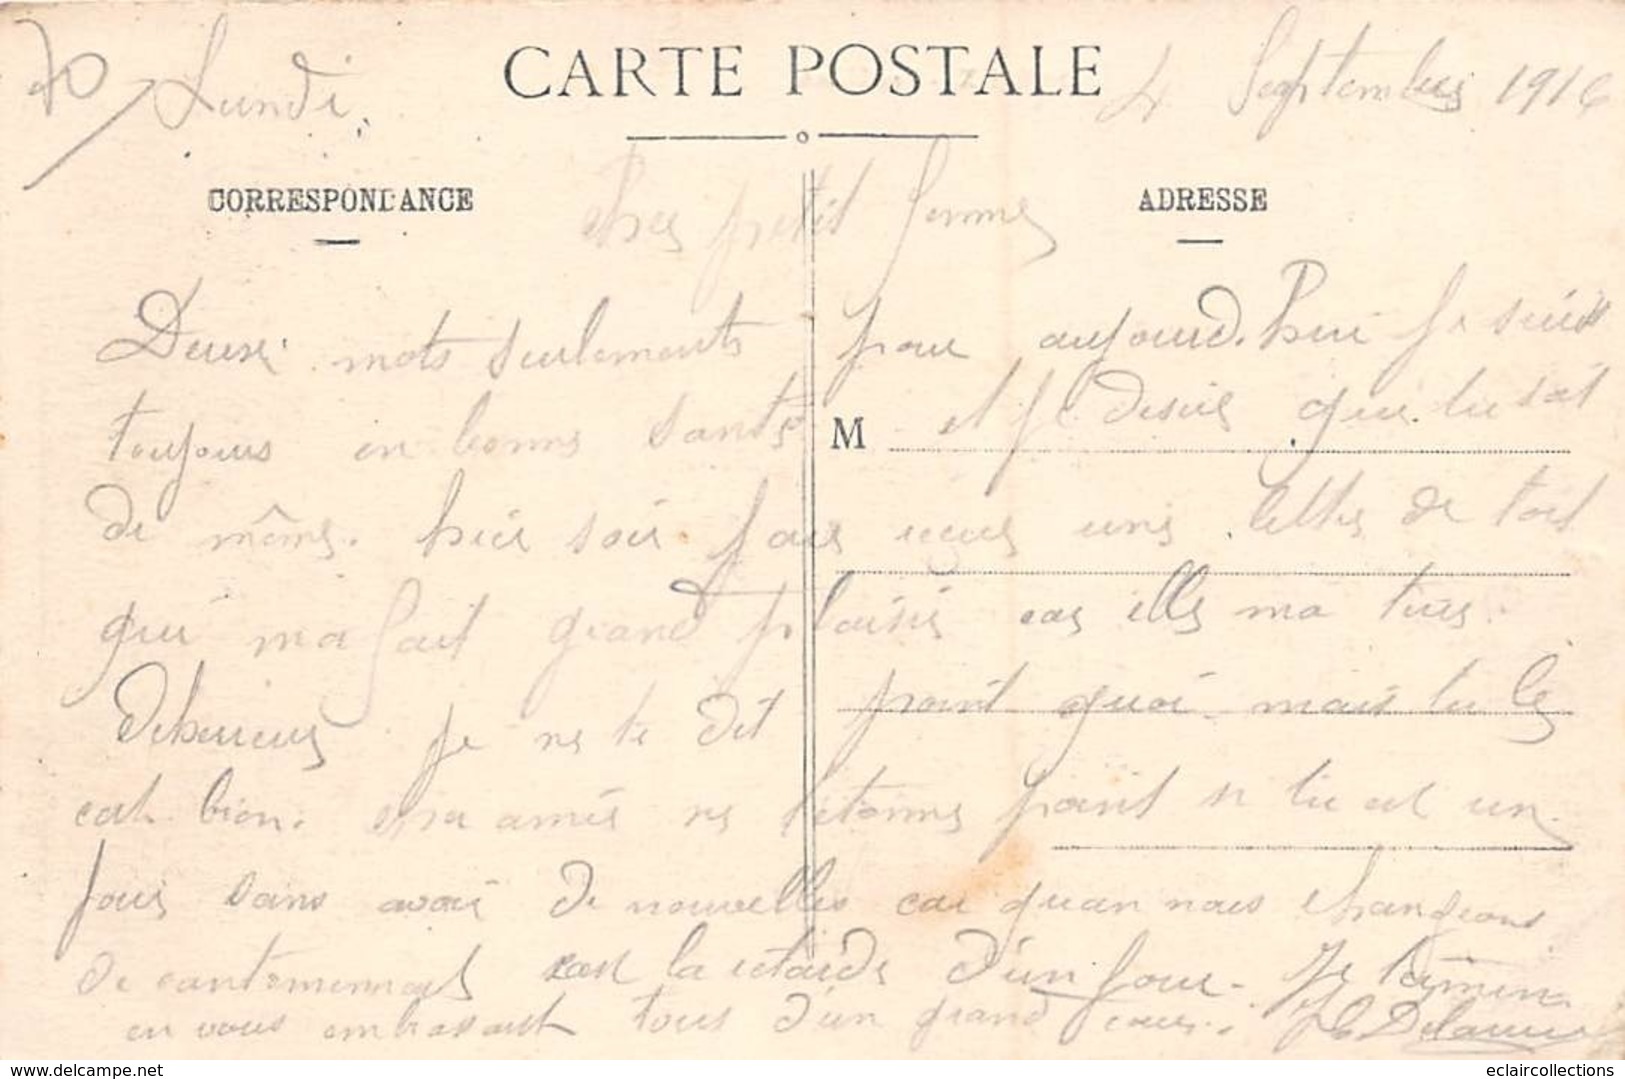 70
Lundi
CARTE POSTALE
4 Septembre 1916
CORRESPONDANCE
ADRESSE
cher petit femme
Deux mots seulements pour aujourd'hui je suis
toujours en bonne santé et je desire que tu soit
M
de même. hier soir j'ais recue une lettre de toi
qui ma fait grand plaisir car elle ma tirer
je ne te dit point quoi mais tu le
cat bien. cher amie ne t'etonne point si tu est un
jour sans avoir de nouvelles car quan nous changeons
de cantonnement sa la retarde d'un jour. Je termine
en vous embrassant tous d'un grand cœur.
eclaircollections
www.delcampe.net